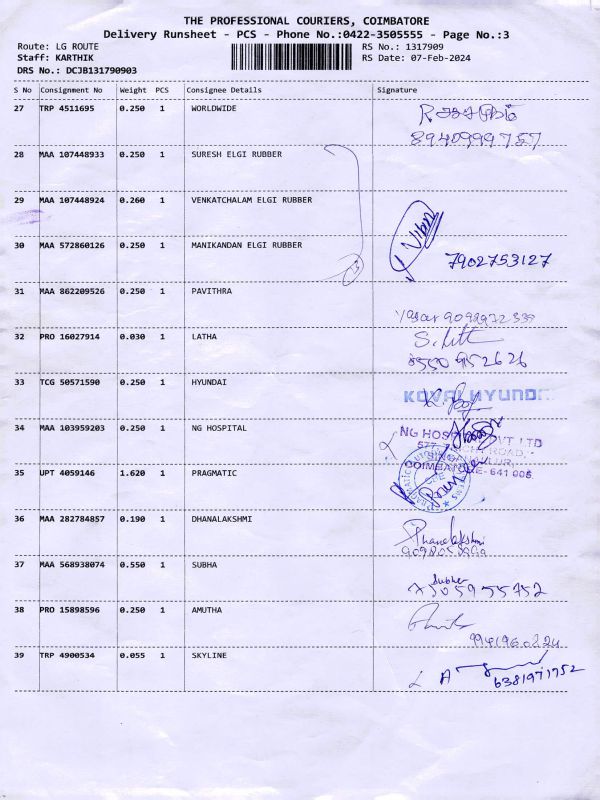 THE PROFESSIONAL COURIERS, COIMBATORE
Delivery Runsheet - PCS - Phone No.:0422-3505555 - Page No.:3
Route: LG ROUTE RS No.: 1317909
Staff: KARTHIK RS Date: 07-Feb-2024
DRS No.: DCJB131790903
S No Consignment No Weight PCS Consignee Details Signature
27 TRP 4511695 0.250 1 WORLDWIDE
8940999757
28 MAA 107448933 0.250 1 SURESH ELGI RUBBER
29 MAA 107448924 0.260 1 VENKATCHALAM ELGI RUBBER
30 MAA 572860126 0.250 1 MANIKANDAN ELGI RUBBER
7902753127
31 MAA 862209526 0.250 1 PAVITHRA
32 PRO 16027914 0.030 1 LATHA
33 TCG 50571590 0.250 1 HYUNDAI KOVAI HYUNDAI
34 MAA 103959203 0.250 1 NG HOSPITAL
35 UPT 4059146 1.620 1 PRAGMATIC
36 MAA 282784857 0.190 1 DHANALAKSHMI
Dhanalakshmi
37 MAA 568938074 0.550 1 SUBHA
38 PRO 15898596 0.250 1 AMUTHA
39 TRP 4900534 0.055 1 SKYLINE
6381971752